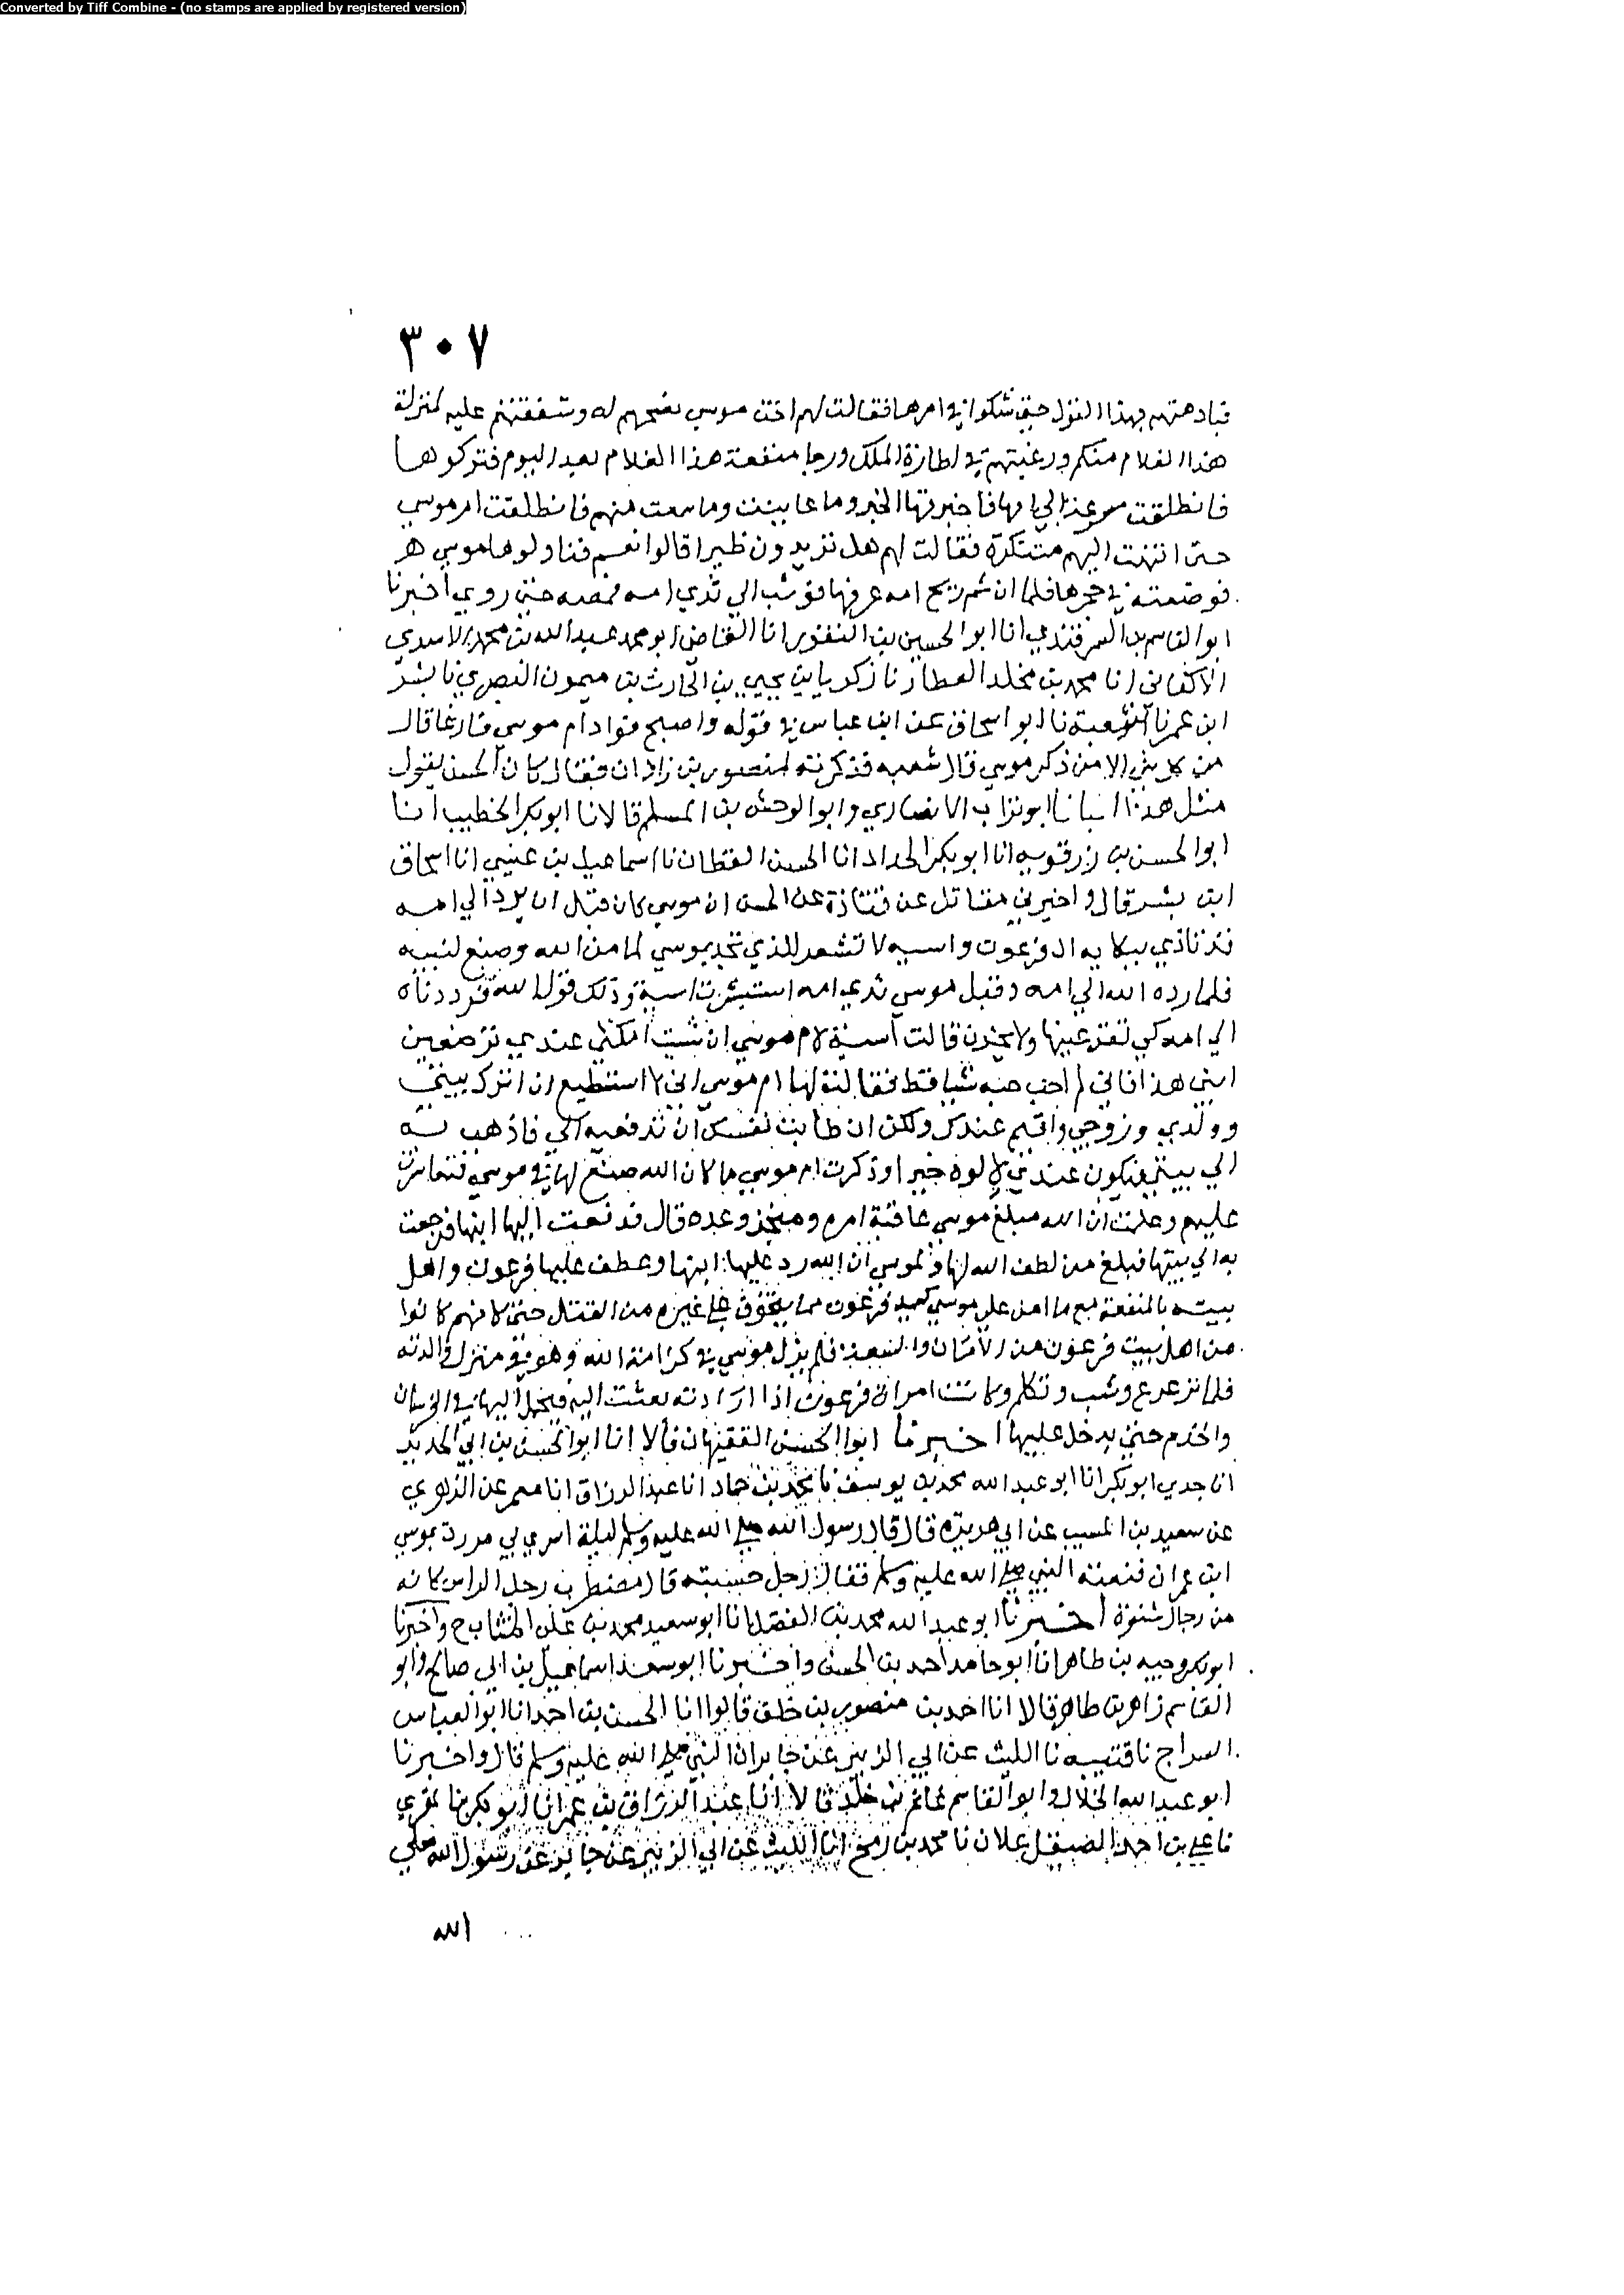 Converted by Tiff Combine - (no stamps are applied by registered version)
٣٠٧
فبادهتهم بهذا القول حتى شكوا في امرها فقالت لهم اخت موسى نصحهم له وشفقتهم عليه لمنزلة
هذا الغلام منكم ورغبتهم في الملك ورجا منفعة هذا الغلام بعد اليوم فتركوها
فانطلقت الى امها فاخبرتها الخبر وما عاينت وما سمعت منهم فانطلقت ام موسى
حتى انتهت اليهم متنكرة فقالت لهم هل تريدون ظيرا قالوا نعم فناولوها موسى
فوضعته في حجرها فلما ان شم ريح امه عرفها فوثب الى ثدي امه فمصه حتى روي اخبرنا
ابو القاسم بن السمرقندي انا ابو الحسين بن النقور انا القاضي ابو محمد عبد الله بن محمد الاسدي
الاكفاني انا محمد بن مخلد العطار نا زكريا بن يحيى بن الحارث بن ميمون البصري نا بشر
ابن عمر نا شعبة نا ابو اسحاق عن ابن عباس في قوله واصبح فواد ام موسى فارغا قال
من كل شي الا من ذكر موسى قال شعبه فذكرته لمنصور بن زاذان فقال كان الحسن يقول
مثل هذا انبانا ابو تراب الانصاري وابو الوحش بن المسلم قالا نا ابو بكر الخطيب انا
ابو الحسن بن رزقويه انا ابو بكر الحداد انا الحسن القطان نا اسماعيل بن عيسى انا اسحاق
ابن بشر قال واخبرني مقاتل عن قتادة عن الحسن ان موسى كان قبل ان يرد الى امه
ببكايه ال فرعون واسيه لا تشعر للذي تجد بموسى لما من الله وصنع لنبيه
فلما رده الله الى امه وقبل موسى ثدي امه استبشرت اسية وذلك قول الله فرددناه
الى امه كي تقر عينها ولا تحزن قالت آسية لام موسى ان شيت امكثي عندي ترضعين
ابني هذا فاني لم احب حبه شيا قط فقالت لها ام موسى اني لا استطيع ان اترك بيتي
وولدي وزوجي واقيم عندك ولكن ان طابت نفسك ان تدفعيه الي فاذهب به
الى بيتي فيكون عندي لا الوه خيرا وذكرت ام موسى ما كان الله صنع لها في موسى فتعاسرت
عليهم وعلمت ان الله مبلغ موسى عاقبة امره ومنجز وعده قال فدفعت اليها ابنها فرجعت
به الى بيتها فبلغ من لطف الله لها ولموسى ان الله رد عليها ابنها وعطف عليها فرعون واهل
بيته بالمنفعة مع ما امن على موسى كيد فرعون مما يتخوف على غيره من القتل حتى كانهم كانوا
من اهل بيت فرعون من الامان والسعة فلم يزل موسى في كرامة الله وهو في منزل والدته
فلما ترعرع وشب وتكلم وكانت امراة فرعون اذا ارادته بعثت اليه فيحمل اليها في
والخدم حتى يدخل عليها اخبرنا ابوا الحسن الفقيهان قالا انا ابو الحسن بن ابي الحديد
انا جدي ابو بكر انا ابو عبد الله محمد بن يوسف نا محمد بن حماد انا عبد الرزاق انا معمر عن الزهري
عن سعيد بن المسيب عن ابي هريرة قال قال رسول الله صلى الله عليه وسلم ليلة اسري بي مررت بموسى
ابن عمران فنعته النبي صلى الله عليه وسلم فقال رجل حسبته قال مضطرب رجل الراس كانه
من رجال شنوة اخبرنا ابو عبد الله محمد بن الفضل انا ابو سعيد محمد بن علي الخشاب ح واخبرنا
ابو بكر وجيه بن طاهر انا ابو حامد احمد بن الحسن واخبرنا ابو سعد اسماعيل بن ابي صالح وابو
القاسم زاهر بن طاهر قالا انا احمد بن منصور بن خلف قالوا انا الحسن بن احمد انا ابو العباس
السراج نا قتيبه نا الليث عن ابي الزبير عن جابر ان النبي صلى الله عليه وسلم قال واخبرنا
ابو عبد الله الخلال وابو القاسم غانم بن خلد قالا انا عبد الرزاق بن عمر انا ابو بكر بن المقري
نا علي بن احمد الصيقل علان نا محمد بن رمح انا الليث عن ابي الزبير عن جابر عن رسول الله صلى
الله